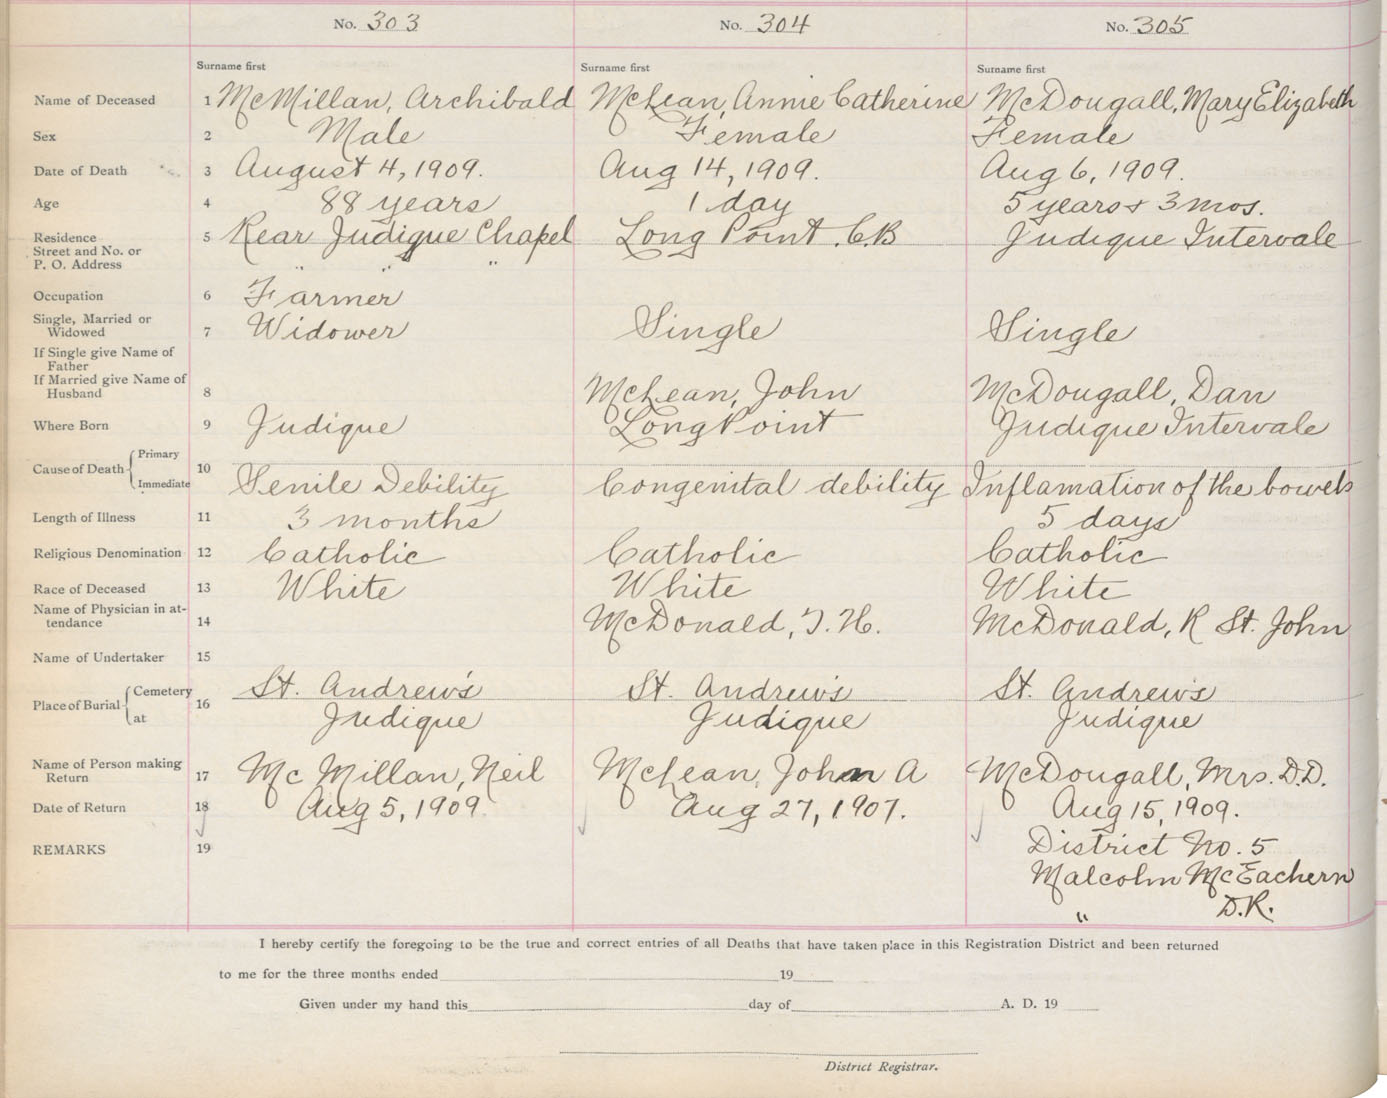 No. 303 No. 304 No. 305
Surname first Surname first Surname first
Name of Deceased 1 McMillan, Archibald McLean, Annie Catherine McDougall, Mary Elizabeth
Sex 2 Male Female Female
Date of Death 3 August 4, 1909. Aug 14, 1909. Aug 6, 1909.
Age 4 88 years 1 day 5 years & 3 mos.
Residence 5 Rear Judique Chapel Long Point, C.B Judique Intervale
Street and No. or
P. O. Address " " "
Occupation 6 Farmer
Single, Married or
Widowed 7 Widower Single Single
If Single give Name of
Father
If Married give Name of
Husband 8 McLean, John McDougall, Dan
Where Born 9 Judique Long Point Judique Intervale
Primary
Cause of Death 10 Senile Debility Congenital debility Inflamation of the bowels
Immediate
Length of Illness 11 3 months 5 days
Religious Denomination 12 Catholic Catholic Catholic
Race of Deceased 13 White White White
Name of Physician in at-
tendance 14 McDonald, T. H. McDonald, R St. John
Name of Undertaker 15
Cemetery St. Andrew's St. Andrew's St. Andrew's
Place of Burial 16
at Judique Judique Judique
Name of Person making
Return 17 Mc Millan, Neil McLean, John A McDougall, Mrs. D.D.
Date of Return 18 Aug 5, 1909 Aug 27, 1907. Aug 15, 1909.
REMARKS 19 District No. 5
Malcolm McEachern
" D.R.
I hereby certify the foregoing to be the true and correct entries of all Deaths that have taken place in this Registration District and been returned
to me for the three months ended 19
Given under my hand this day of A. D. 19
District Registrar.